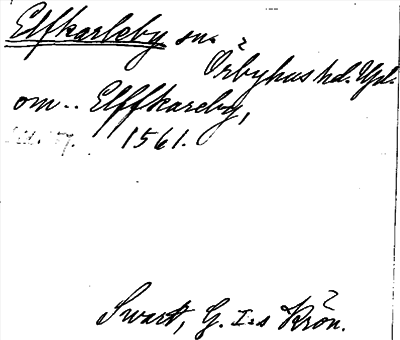 Elfkarleby sn. 2
Örbyhus hd. Upl.
om.. Elffkareby,
1561.
Swart, G. I:s Krön.